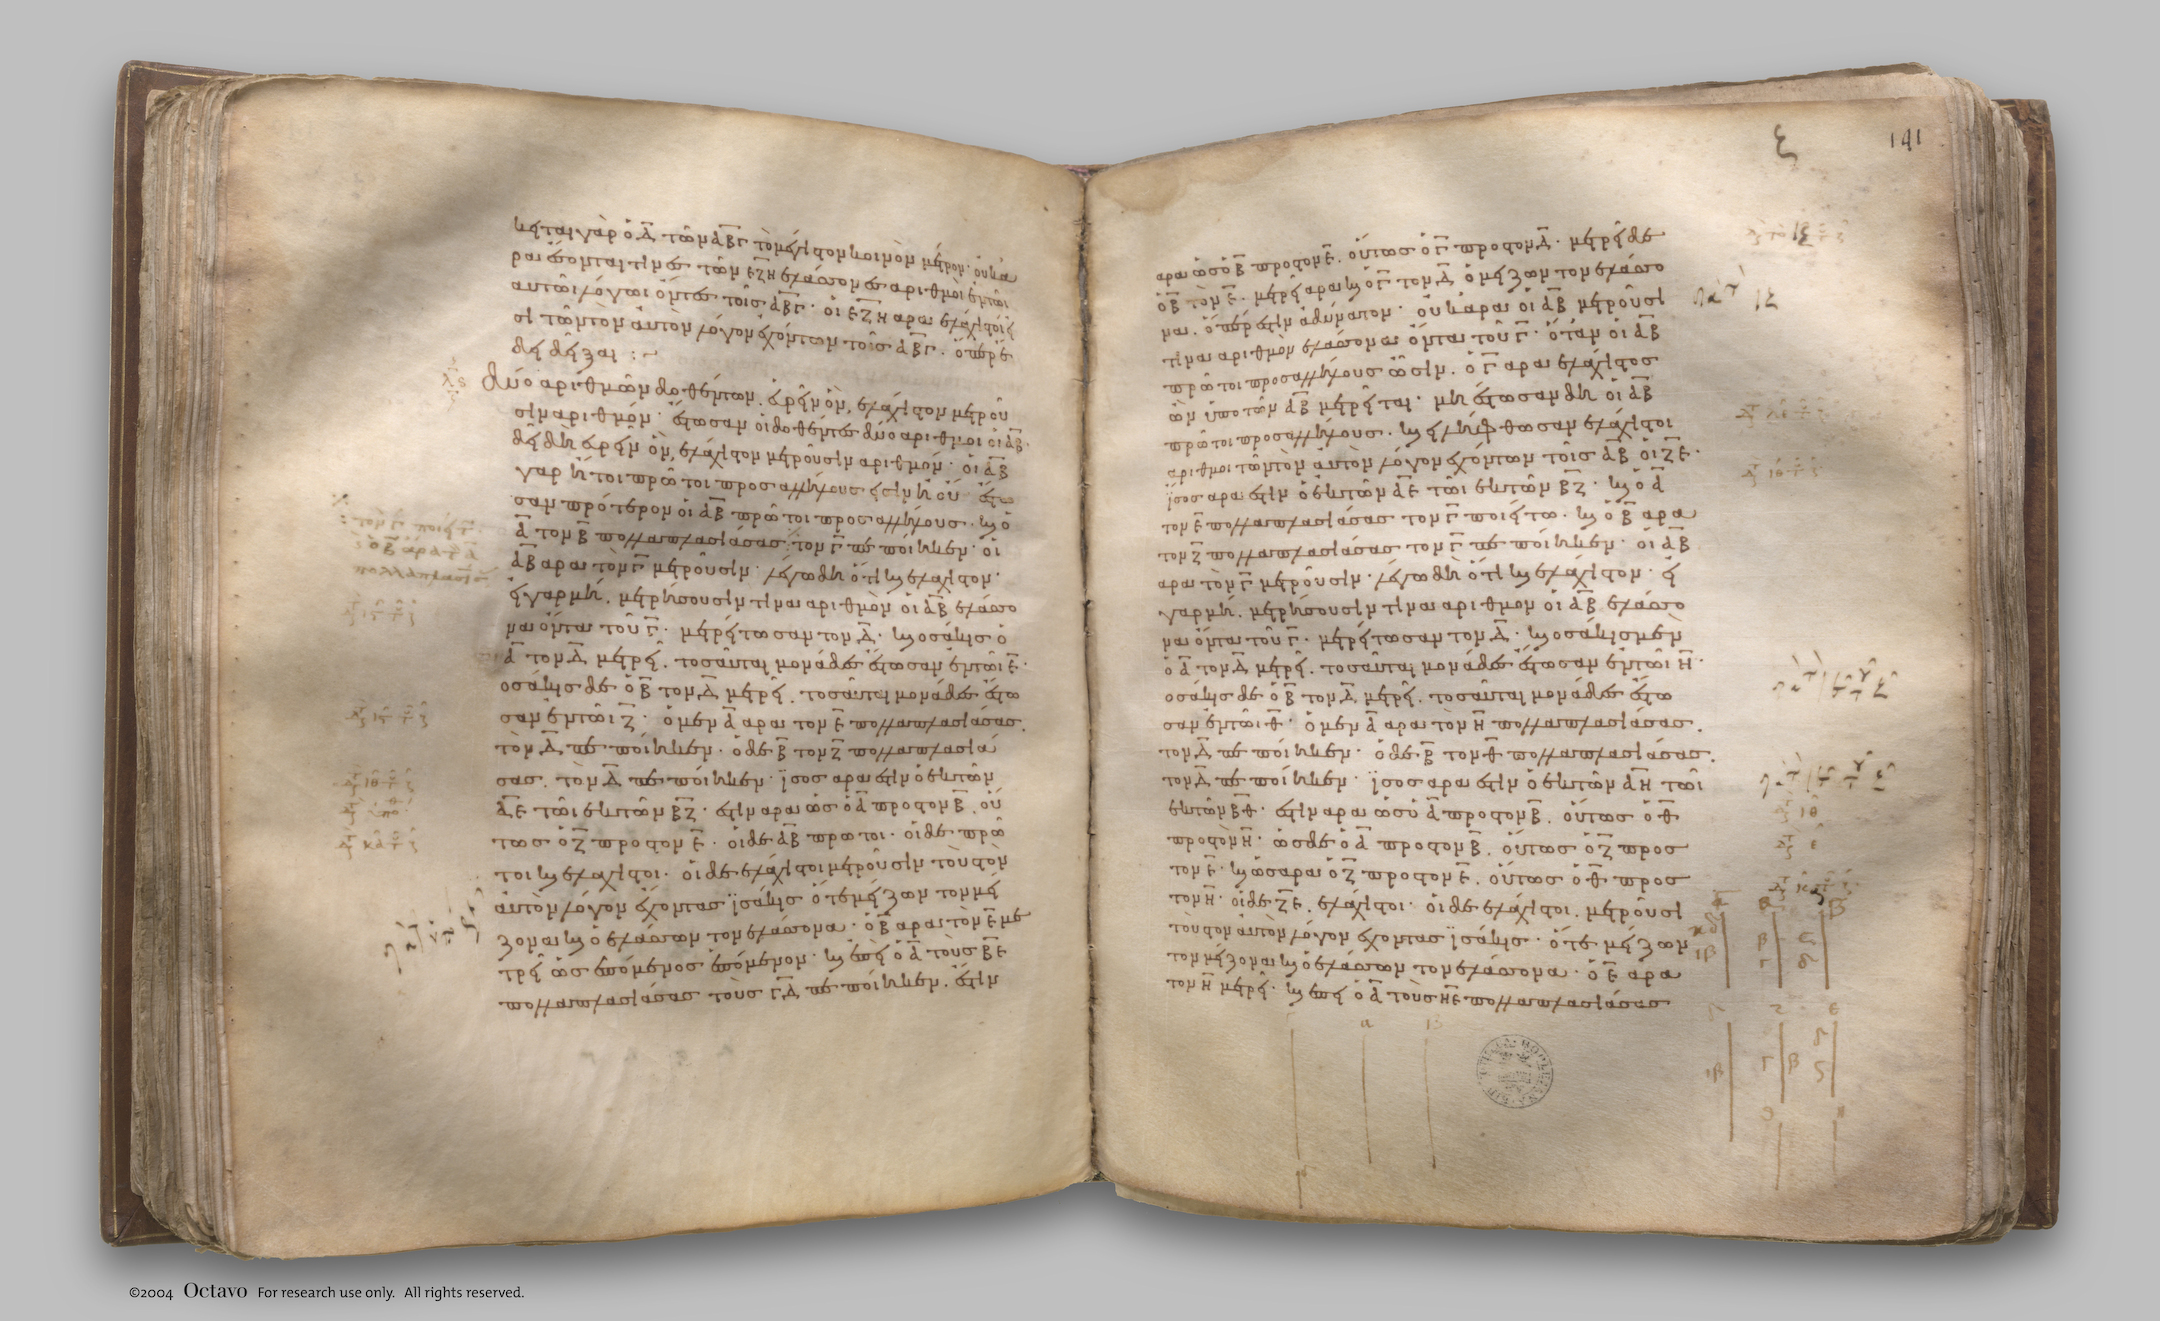 κειται γὰρ ὁ Δ τῶν ΑΒΓ τὸ μέγιστον κοινὸν μέτρον· οὐκ ἄ
ρα ἔσονται τινὲς τῶν ΕΖΗ ἐλάσσονες ἀριθμοὶ ἐν τῶι
αυτῶι λόγωι ὄντες τοῖς ΑΒΓ· οἱ ΕΖΗ ἄρα ἐλάχιστοι εἰ
σὶ τῶν τὸν ἀυτὸν λόγον ἐχόντων τοῖς ΑΒΓ. ὅπερ ἔ
δει δεῖξαι :~
λϛ
δύο ἀριθμῶν δοθέντων, εὑρεῖν ὃν, ἐλάχιστον μετροῦ
σιν ἀριθμόν· ἔστωσαν οἱ δοθέντες δύο αριθμοι οἱ ΑΒ·
δεῖ δὴ εὑρεῖν ὃν, ἐλάχιστον μετροῦσιν ἀριθμόν· οἱ ΑΒ
γαρ ἤτοι πρῶτοι προς αλλήλους εἰσὶν ἢ οὔ· ἔστω
σαν πρότερον οἱ ΑΒ πρῶτοι προς αλλήλους· καὶ ὁ
Α τὸν Β πολλαπλασιάσας τον Γ πεποίηκεν· οἱ
ΑΒ αρα τὸν Γ μετροῦσιν· λέγω δὴ ὅτι καὶ ἐλαχιστον·
εἰ γαρ μὴ, μετρήσουσιν τινα αριθμὸν οἱ ΑΒ ἐλάσσο
να ὄντα τοῦ Γ· μετρείτωσαν τον Δ· καὶ οσάκις ὁ
Α τον Δ μετρεῖ, τοσαῦται μονάδες ἔστωσαν ἐν τῶι Ε·
οσάκις δε ὁ Β τον Δ μετρεῖ, τοσαῦται μονάδες ἔστω
σαν ἐν τῶι Ζ· ὁ μεν Α αρα τον Ε πολλαπλασιάσας
τὸν Δ πεποίηκεν· ὁ δε Β τον Ζ πολλαπλασιά
σας, τὸν Δ πεποίηκεν· ἴσος αρα ἐστὶν ὁ ἐκ τῶν
ΑΕ τῶι ἐκ τῶν ΒΖ· ἐστὶν αρα ὡς ὁ Α προς τον Β, οὕ
τως ὁ Ζ προς τον Ε· οἱ δε ΑΒ πρωτοι· οἱ δε πρῶ
τοι καὶ ἐλαχιστοι· οἱ δε ἐλάχιστοι μετροῦσιν τοὺς τὸν
ἀυτὸν λόγον ἔχοντας ἰσάκις ὅ τε μείζων τον μεί
ζονα καὶ ὁ ἐλάσσων τον ἐλάσσονα· ὁ Β αρα τὸν Ε με
τρεῖ ὡς ἑπόμενος ἑπόμενον· καὶ ἐπεὶ ὁ Α τοὺς ΒΕ
πολλαπλασιάσας τοὺς ΓΔ πεποίηκεν, ἔστιν
141
αρα ὡς ὁ Β προς τον Ε, οὕτως ὁ Γ προς τον Δ· μετρεῖ δε
ὁ Β τὸν Ε· μετρεῖ αρα καὶ ὁ Γ τον Δ ὁ μείζων τον ἐλάσσο
να, ὅπερ ἐστὶν ἀδύνατον· οὐκ αρα οἱ ΑΒ μετροῦσι
τινα αριθμὸν ἐλάσσονα ὄντα τοῦ Γ· ὅταν οἱ ΑΒ
πρῶτοι προς αλλήλους ὦσιν. ὁ Γ αρα ἐλάχιστος
ὢν ὑπο τῶν ΑΒ μετρεῖται· μὴ ἔστωσαν δὴ οἱ ΑΒ
πρῶτοι προς αλλήλους. καὶ εἰλήφθωσαν ἐλάχιστοι
αριθμοι τῶν τὸν ἀυτὸν λόγον ἐχόντων τοῖς ΑΒ οἱ ΖΕ·
ἴσος αρα ἐστὶν ὁ ἐκ τῶν ΑΕ τῶι ἐκ τῶν ΒΖ· καὶ ὁ Α
τον Ε πολλαπλασιάσας τον Γ ποιείτω· καὶ ὁ Β αρα
τον Ζ πολλαπλασιάσας τον Γ πεποίηκεν· οἱ ΑΒ
αρα τὸν Γ μετροῦσιν· λέγω δὴ ὅτι καὶ ἐλάχιστον· εἰ
γαρ μὴ, μετρήσουσιν τινα αριθμον οἱ ΑΒ ἐλάσσο
να ὄντα τοῦ Γ· μετρείτωσαν τον Δ· καὶ οσάκις μὲν
ὁ Α τὸν Δ μετρεῖ, τοσαῦται μονάδες ἔστωσαν ἐν τῶι Η·
οσάκις δε ὁ Β τον Δ μετρεῖ, τοσαῦται μονάδες ἔστω
σαν ἐν τῶι Θ· ὁ μεν Α αρα τὸν Η πολλαπλασιάσας
τον Δ πεποίηκεν· ὁ δε Β τον Θ πολλαπλασιάσας
τον Δ πεποίηκεν· ἴσος αρα ἐστὶν ὁ ἐκ τῶν ΑΗ τῶι
ἐκ τῶν ΒΘ· ἐστὶν αρα ὡς ὁ Α προς τον Β, οὕτως ὁ Θ
προς τὸν Η· ὡς δε ὁ Α προς τον Β, οὕτως ὁ Ζ προς
τον Ε· καὶ ὡς αρα ὁ Ζ προς τον Ε, οὕτως ὁ Θ προς
τον Η· οἱ δε ΖΕ, ἐλάχιστοι· οἱ δε ἐλάχιστοι, μετροῦσι
τοὺς τον ἀυτὸν λόγον ἔχοντας ἰσάκις· ὅ τε μείζων
τον μείζονα καὶ ὁ ἐλάσσων τον ἐλάσσονα· ὁ Ε αρα
τον Η μετρεῖ· καὶ ἐπεὶ ὁ Α τοὺς ΗΕ πολλαπλασιάσας
©2004 Octavo For research use only. All rights reserved.